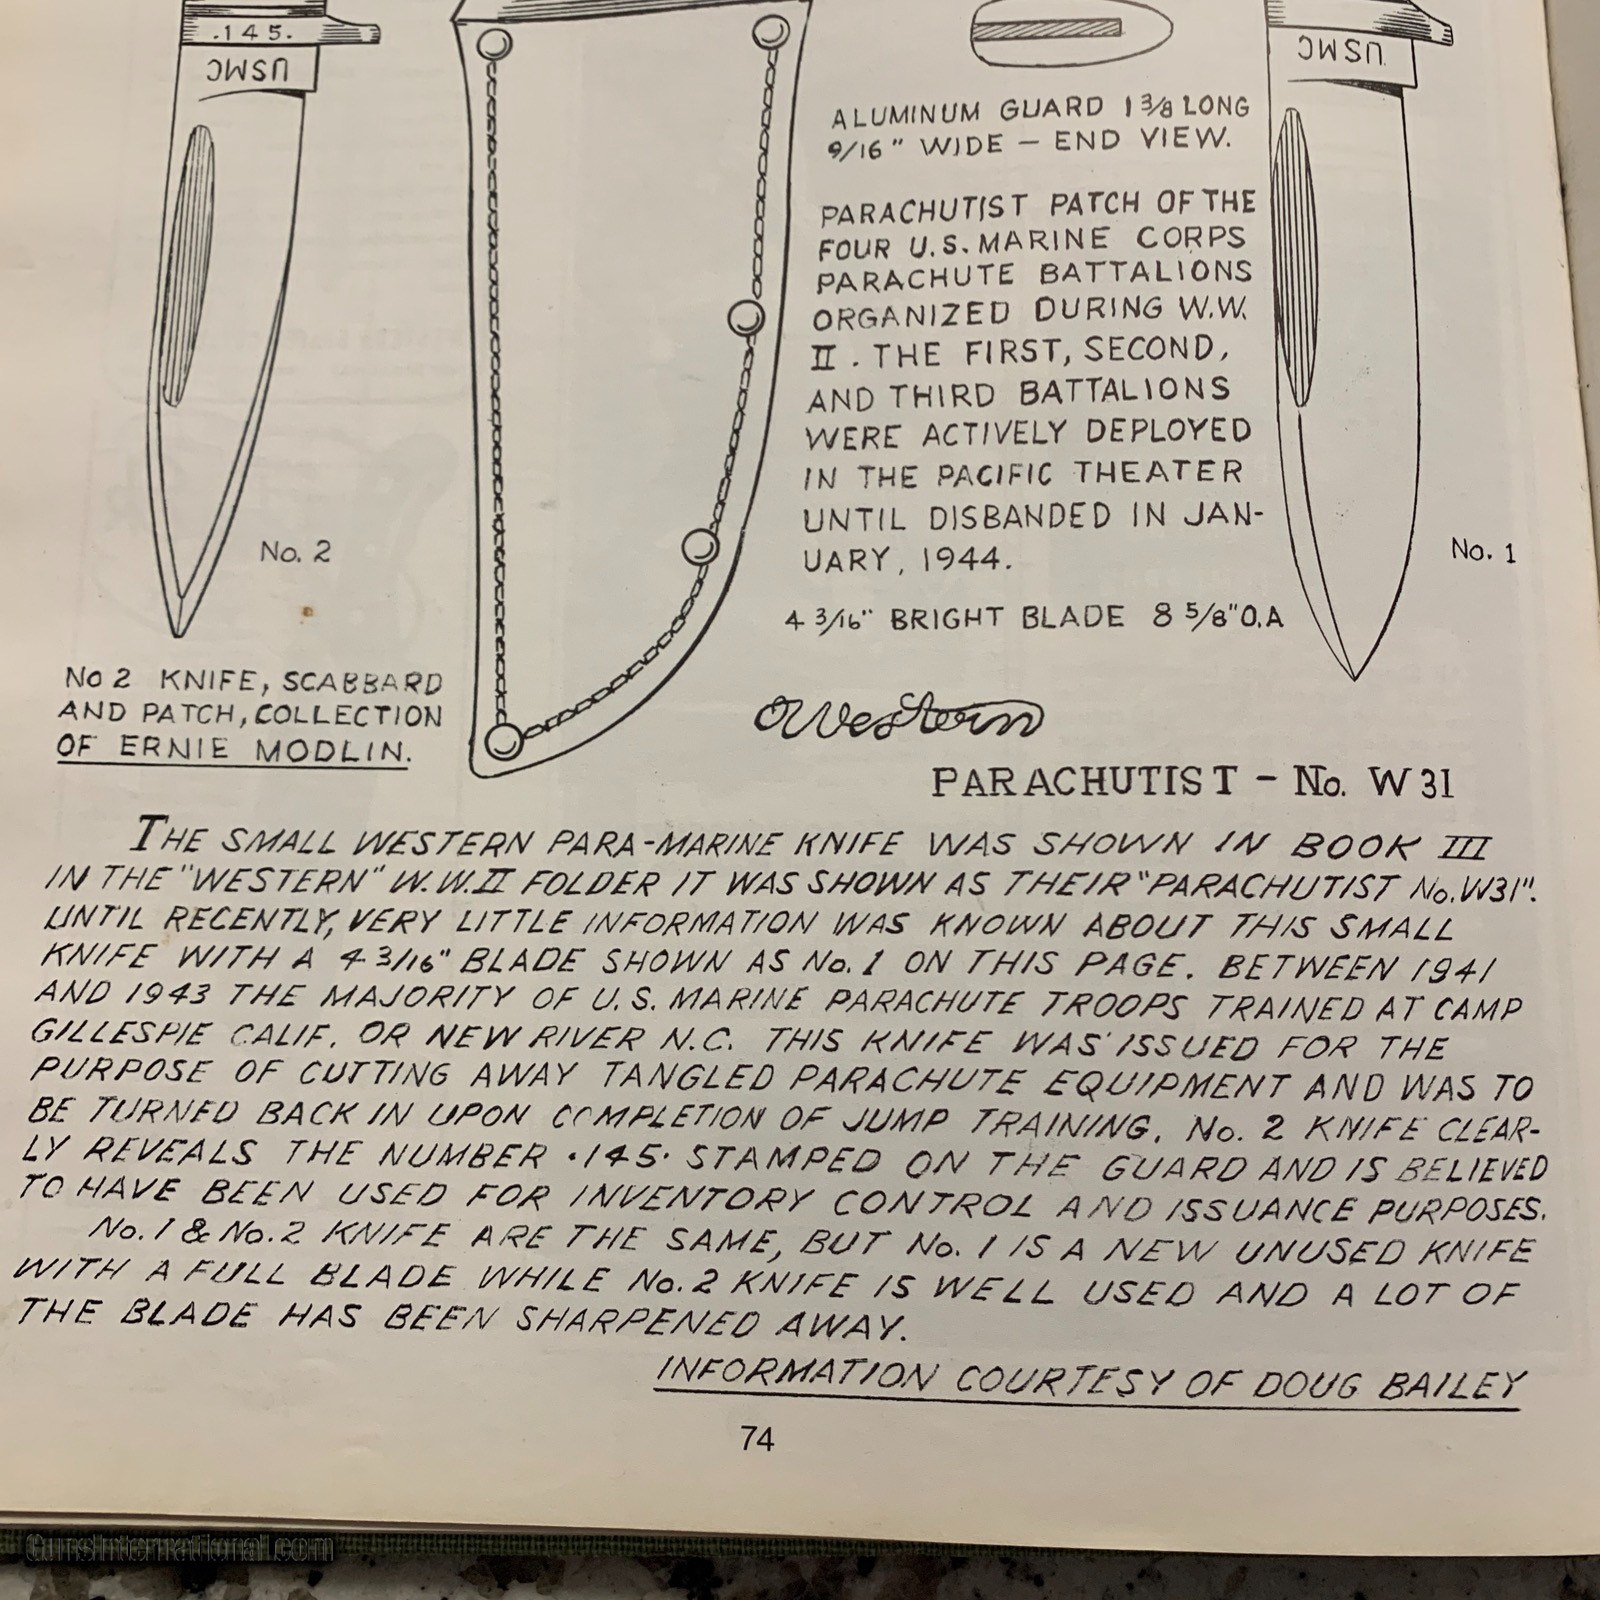 .145.
USMC
USMC
ALUMINUM GUARD 1 3/8 LONG
9/16" WIDE – END VIEW.
PARACHUTIST PATCH OF THE
FOUR U.S. MARINE CORPS
PARACHUTE BATTALIONS
ORGANIZED DURING W.W.
II. THE FIRST, SECOND,
AND THIRD BATTALIONS
WERE ACTIVELY DEPLOYED
IN THE PACIFIC THEATER
UNTIL DISBANDED IN JAN-
UARY, 1944.
No. 2
No. 1
4 3/16" BRIGHT BLADE 8 5/8" O.A
No 2 KNIFE, SCABBARD
AND PATCH, COLLECTION
OF ERNIE MODLIN.
Western
PARACHUTIST – No. W31
THE SMALL WESTERN PARA-MARINE KNIFE WAS SHOWN IN BOOK III
IN THE "WESTERN" W.W.II FOLDER IT WAS SHOWN AS THEIR "PARACHUTIST No. W31".
UNTIL RECENTLY, VERY LITTLE INFORMATION WAS KNOWN ABOUT THIS SMALL
KNIFE WITH A 4 3/16" BLADE SHOWN AS No. 1 ON THIS PAGE. BETWEEN 1941
AND 1943 THE MAJORITY OF U.S. MARINE PARACHUTE TROOPS TRAINED AT CAMP
GILLESPIE CALIF. OR NEW RIVER N.C. THIS KNIFE WAS ISSUED FOR THE
PURPOSE OF CUTTING AWAY TANGLED PARACHUTE EQUIPMENT AND WAS TO
BE TURNED BACK IN UPON COMPLETION OF JUMP TRAINING. No. 2 KNIFE CLEAR-
LY REVEALS THE NUMBER .145. STAMPED ON THE GUARD AND IS BELIEVED
TO HAVE BEEN USED FOR INVENTORY CONTROL AND ISSUANCE PURPOSES.
No. 1 & No. 2 KNIFE ARE THE SAME, BUT No. 1 IS A NEW UNUSED KNIFE
WITH A FULL BLADE WHILE No. 2 KNIFE IS WELL USED AND A LOT OF
THE BLADE HAS BEEN SHARPENED AWAY.
INFORMATION COURTESY OF DOUG BAILEY
74
GunsInternational.com